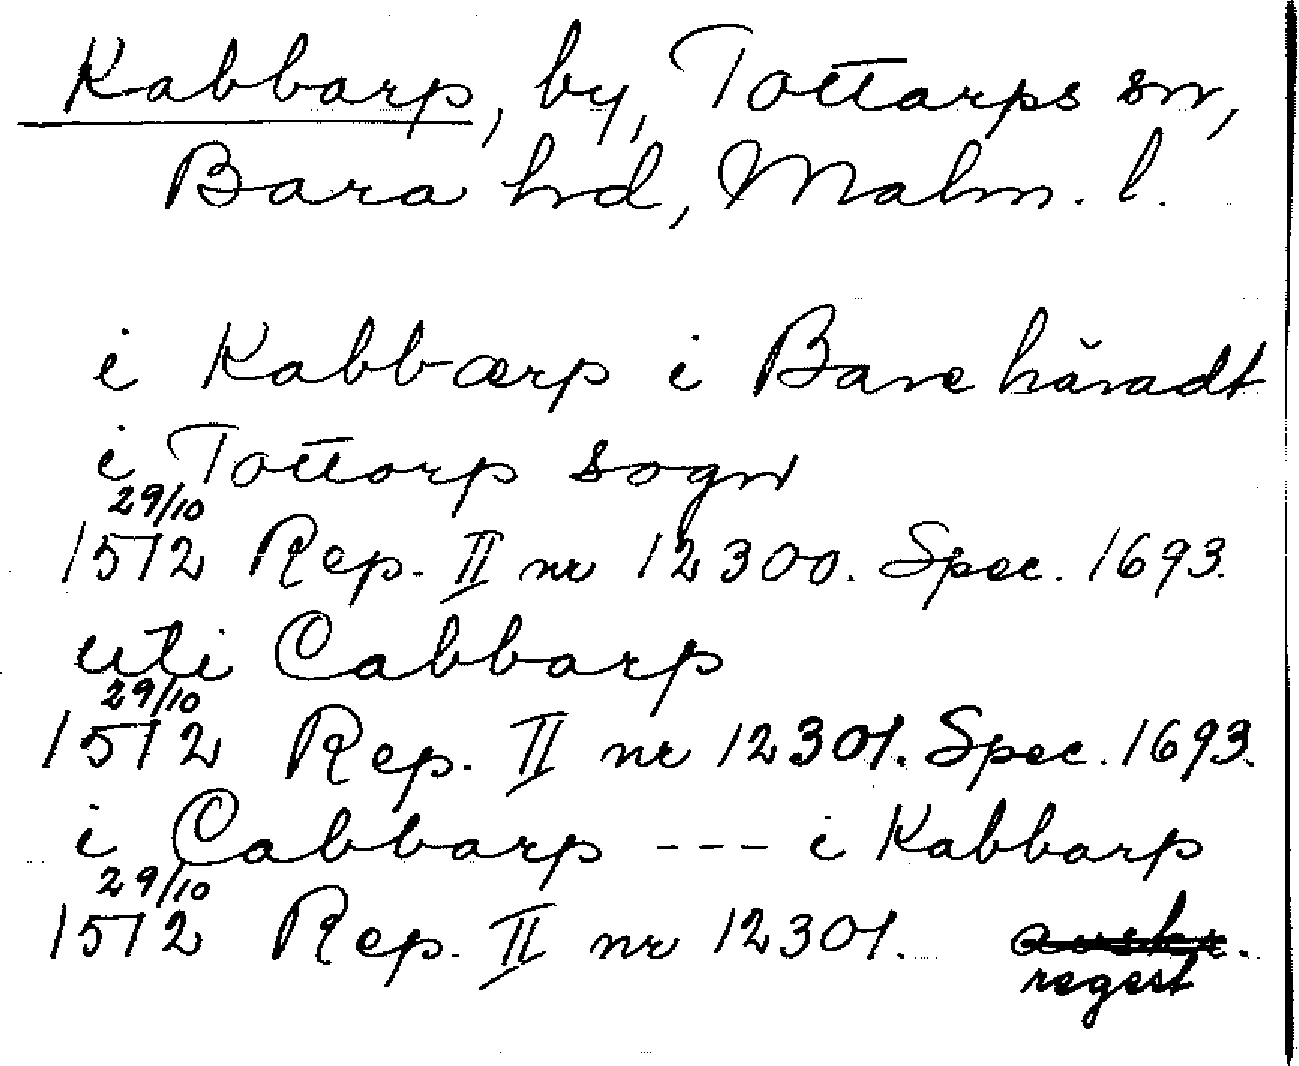 Kabbarp, by, Tottarps sn,
Bara hd, Malm. l.
i Kabbærp i Bare häradt
i Tottorp sogn
29/10
1572 Rep. II nr 12300. Spec. 1693.
uti Cabbarp
29/10
1572 Rep. II nr 12301. Spec. 1693.
i Cabbarp --- i Kabbarp
29/10
1572 Rep. II nr 12301. avskr.
regest